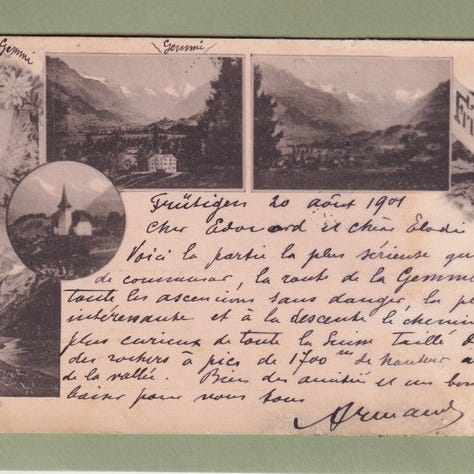 Gemmi
Gemmi
Frütigen 20 août 1901
Cher Edouard et chère Elodi
Voici la partie la plus sérieuse qu
de commencer, la route de la Gemmi
toute les ascencions sans danger, la p
intéressante et à la descente le chemin
plus curieux de toute la Suisse taillé d
des rochers à pics de 1700 m de hauteur a
de la vallée. Bien des amitiés et un bon
baiser pour vous tous
Armand